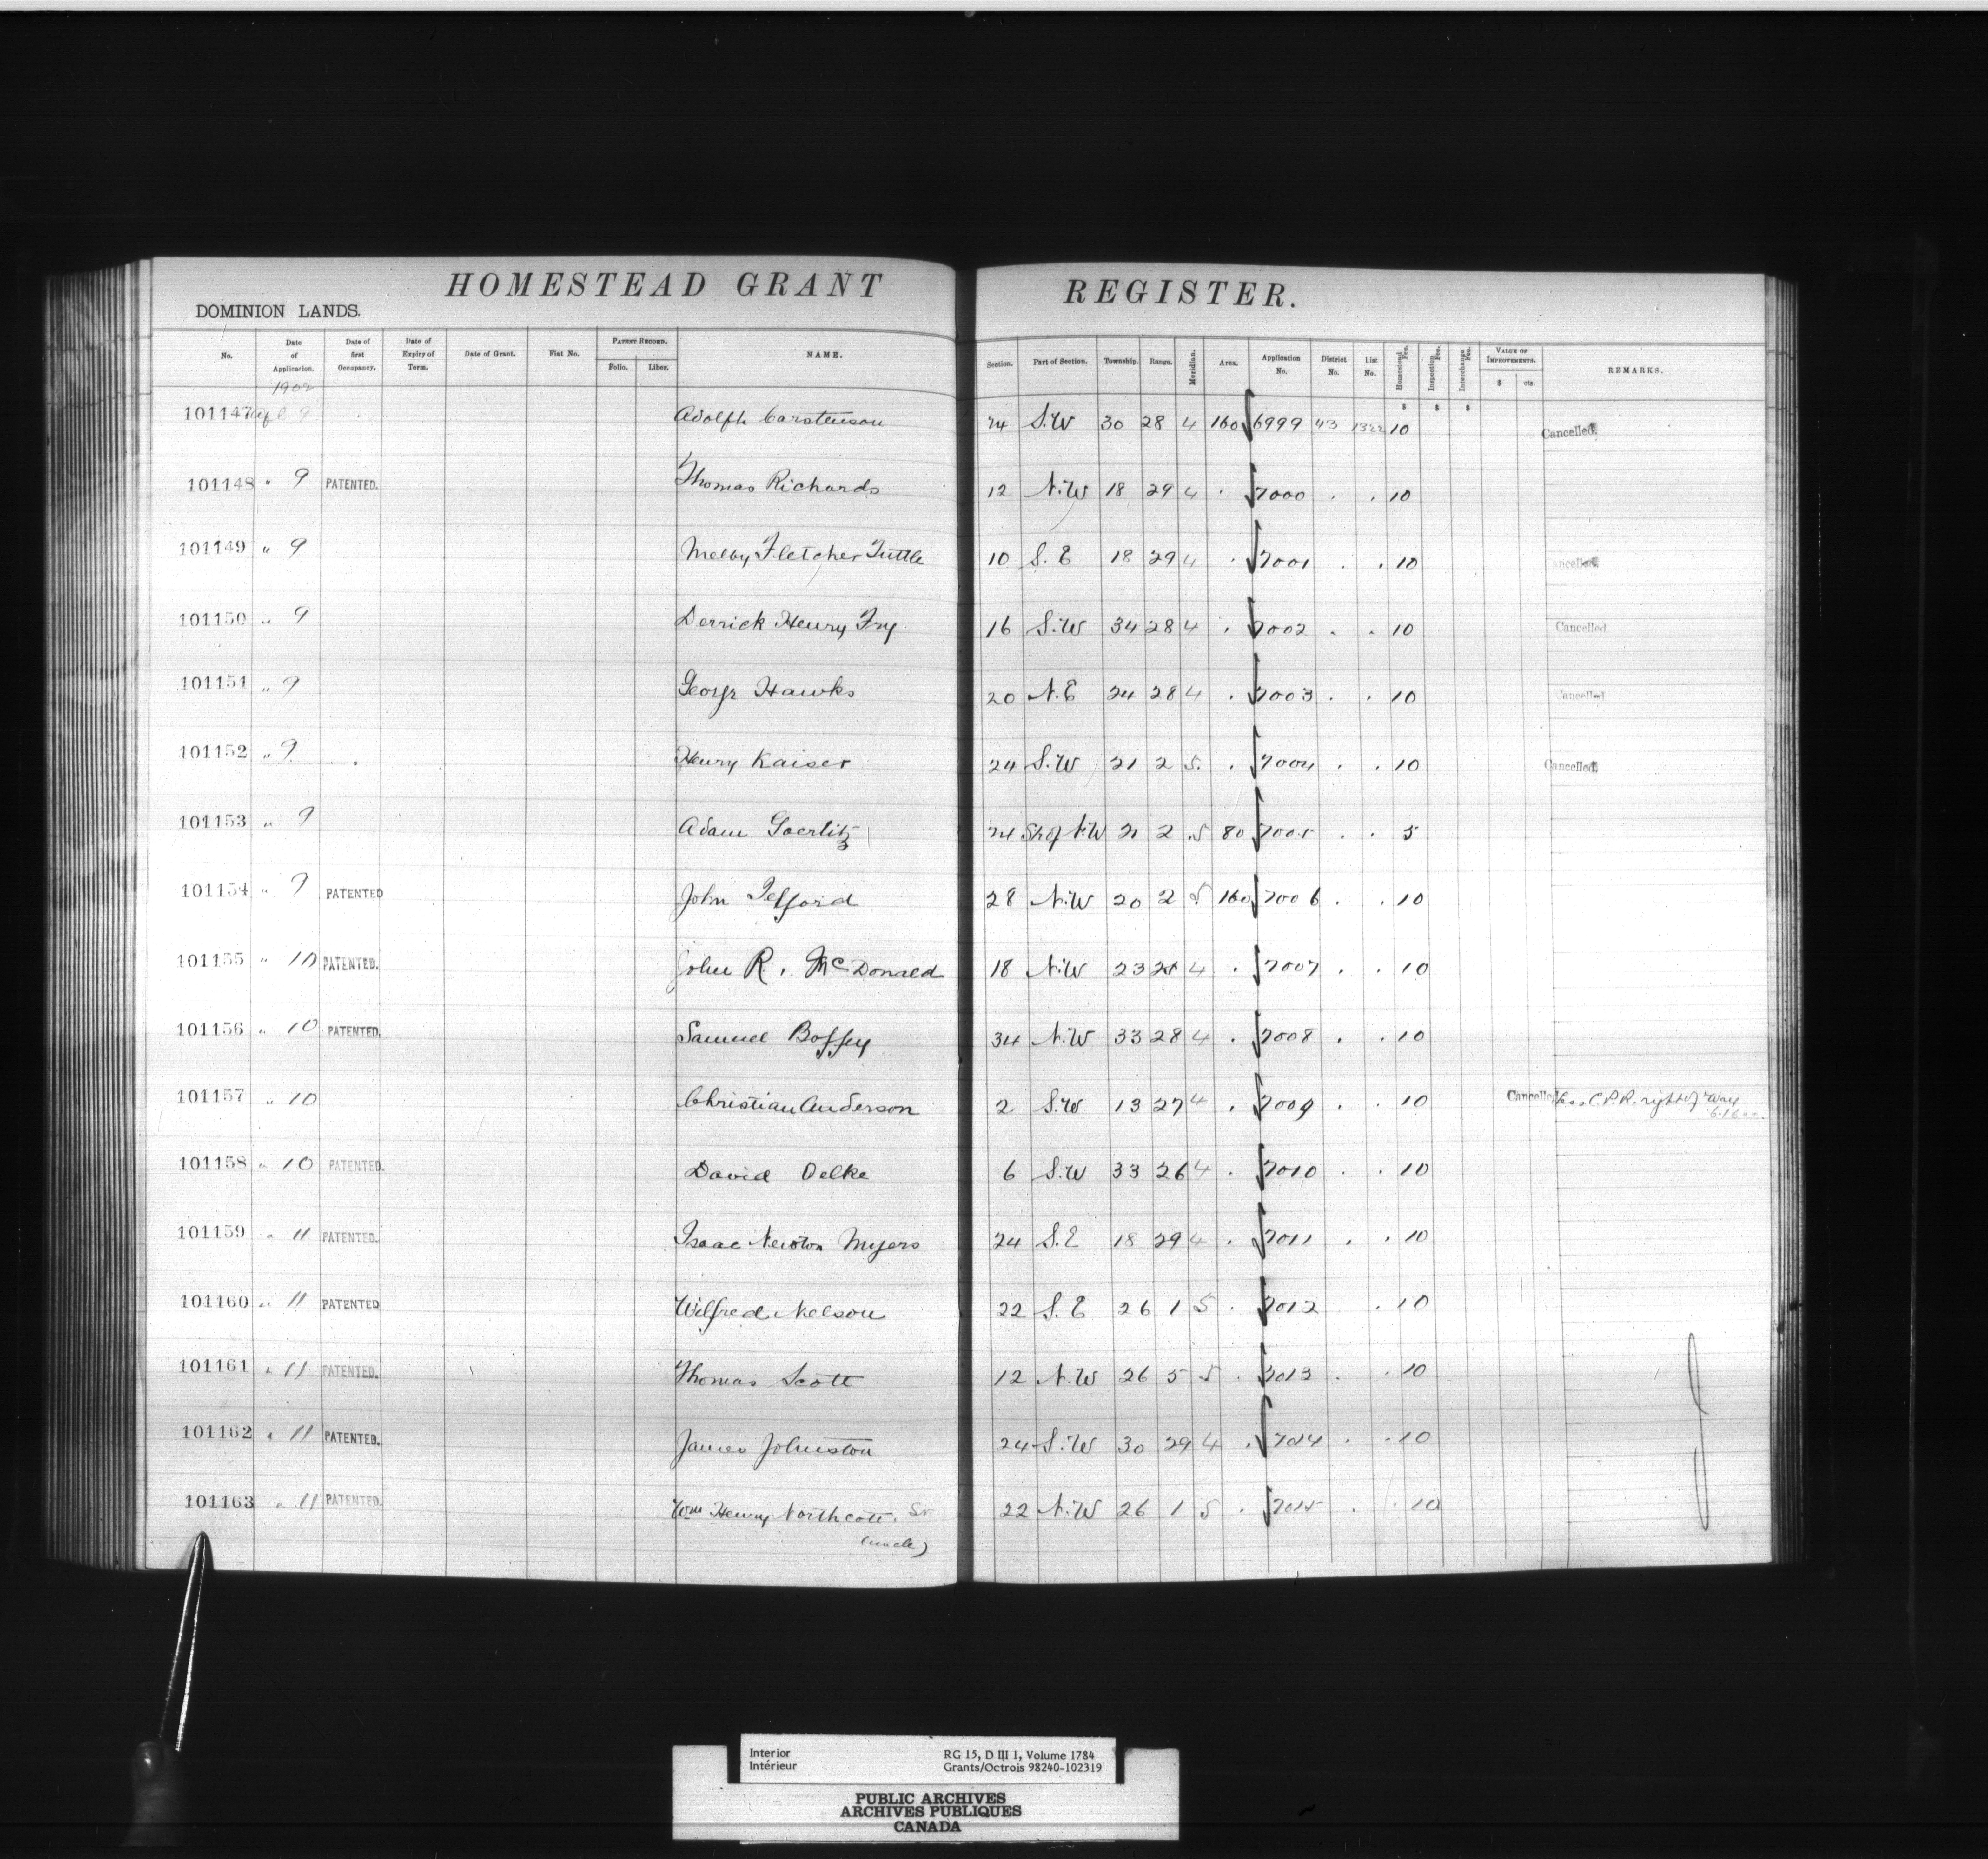 HOMESTEAD GRANT REGISTER.
DOMINION LANDS.
No. Date of Application. Date of first Occupancy. Date of Expiry of Term. Date of Grant. Fiat No. PATENT RECORD. Folio. Liber. NAME. Section. Part of Section. Township. Range. Meridian. Area. Application No. District No. List No. Homestead Fee. Inspection Fee. Interchange Fee. VALUE OF IMPROVEMENTS. $ cts. REMARKS.
1902
$ $ $
101147 Apl 9 Adolph Carstenson 24 S.W 30 28 4 160 6999 43 1322 10 Cancelled.
101148 " 9 PATENTED. Thomas Richards 12 N.W 18 29 4 . 7000 . . 10
101149 " 9 Melby Fletcher Tuttle 10 S.E 18 29 4 . 7001 . . 10 ancelled
101150 " 9 Derrick Henry Fry 16 S.W 34 28 4 . 7002 . . 10 Cancelled
101151 " 9 George Hawks 20 N.E 24 28 4 . 7003 . . 10 Cancelled
101152 " 9 Henry Kaiser 24 S.W 21 2 5. . 7004 . . 10 Cancelled.
101153 " 9 Adam Goerlitz 24 S½ of N.W 21 2 5 80 7005 . . 5
101154 " 9 PATENTED John Telford 28 N.W 20 2 5 160 7006 . . 10
101155 " 10 PATENTED. John R. McDonald 18 N.W 23 4 . 7007 . . 10
101156 " 10 PATENTED. Samuel Boffey 34 N.W 33 28 4 . 7008 . . 10
101157 " 10 Christian Anderson 2 S.W 13 27 4 . 7009 . . 10 Cancelled less C.P.R. right of way
6.16 ac.
101158 " 10 PATENTED. David Oelke 6 S.W 33 26 4 . 7010 . . 10
101159 " 11 PATENTED. Isaac Newton Myers 24 S.E 18 29 4 . 7011 . . 10
101160 " 11 PATENTED Wilfred Nelson 22 S.E 26 1 5 . 7012 . 10
101161 " 11 PATENTED. Thomas Scott 12 N.W 26 5 5 . 7013 . . 10
101162 " 11 PATENTED. James Johnston 24 S.W 30 29 4 . 7014 . . 10
101163 " 11 PATENTED. Wm Henry Northcott. Sr 22 N.W 26 1 5 . 7015 . . 10
(uncle)
Interior RG 15, D III 1, Volume 1784
Intérieur Grants/Octrois 98240-102319
PUBLIC ARCHIVES
ARCHIVES PUBLIQUES
CANADA